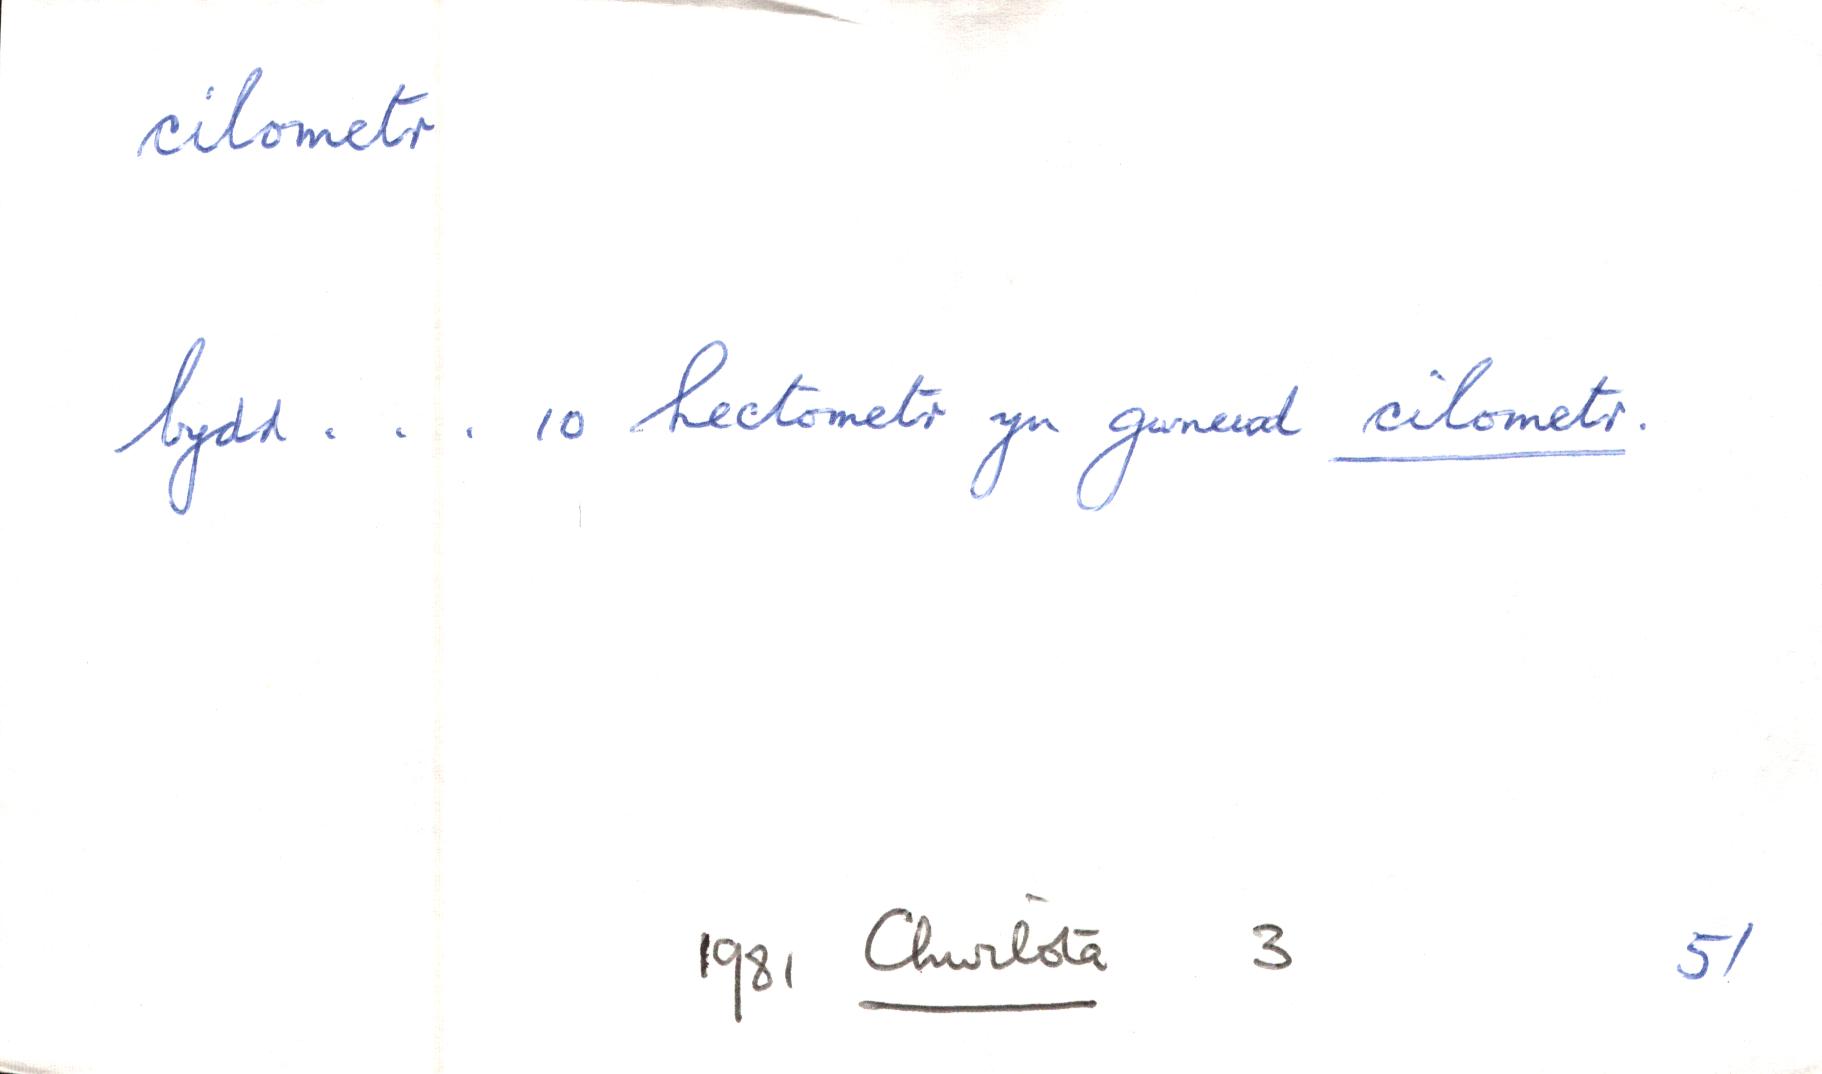 cilometr
bydd . . . 10 hectometr yn gwneud cilometr.
1981 Chwilota 3 51